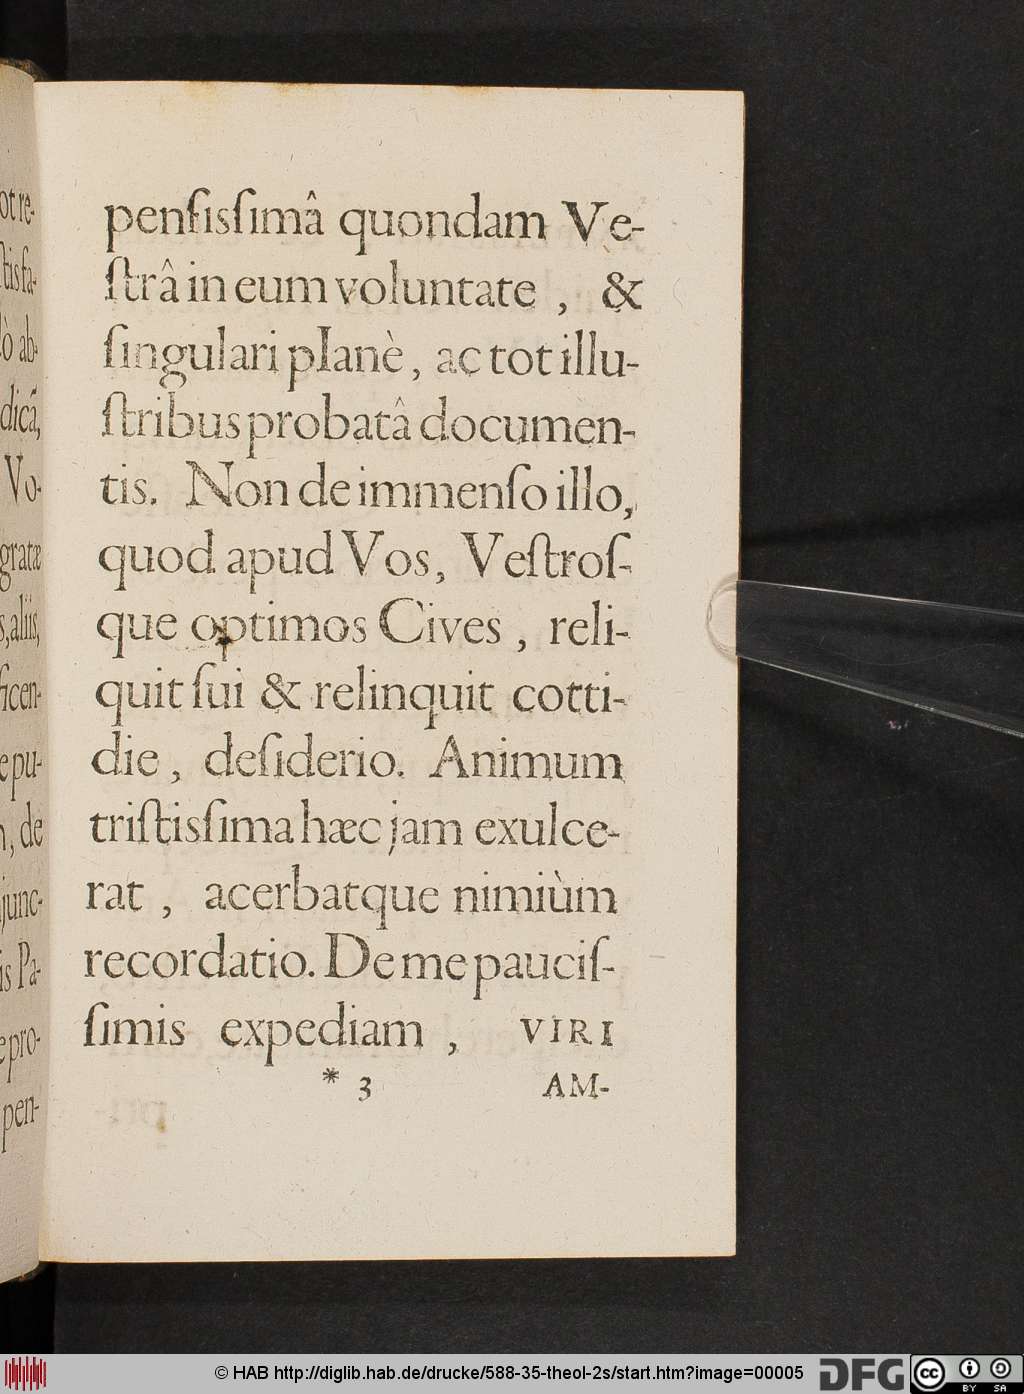 ot re-
ſtis fa-
lò ab-
dicã,
Vo-
gratæ
s, aliis,
ficen-
e pu-
n, de
junc-
is Pa-
e pro-
pen-
penſisſimâ quondam Ve-
ſtrâ in eum voluntate , &
ſingulari planè, ac tot illu-
ſtribus probatâ documen-
tis. Non de immenſo illo,
quod apud Vos, Veſtroſ-
que optimos Cives , reli-
quit ſui & relinquit cotti-
die , deſiderio. Animum
triſtisſima hæc jam exulce-
rat , acerbatque nimiùm
recordatio. De me pauciſ-
ſimis expediam , VIRI
* 3 AM-
© HAB http://diglib.hab.de/drucke/588-35-theol-2s/start.htm?image=00005
DFG
cc BY SA